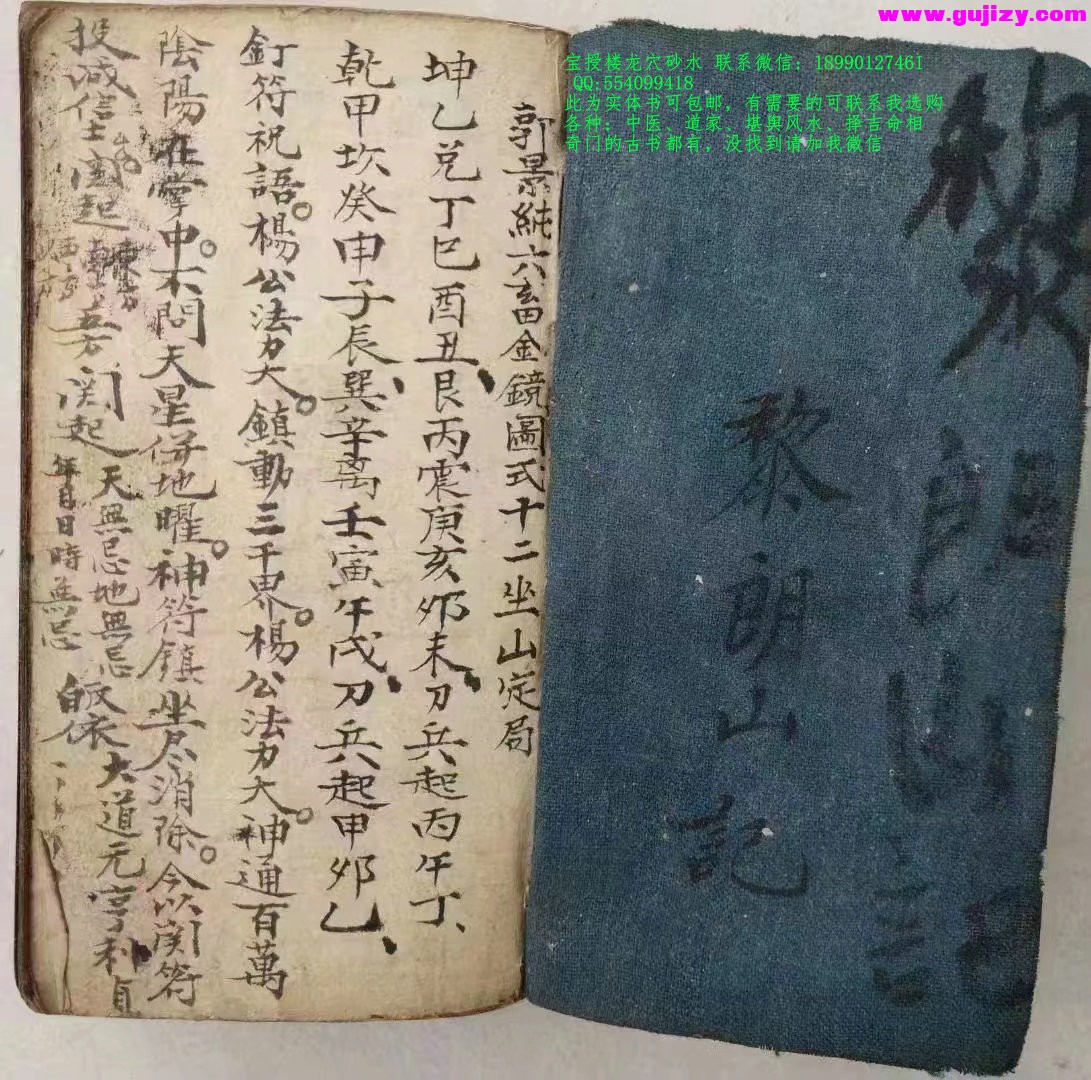 www.gujizy.com
宝授楼龙穴砂水 联系微信：18990127461
QQ:554099418
此为实体书可包邮，有需要的可联系我选购
各种：中医、道家、堪舆风水、择吉命相
奇门的古书都有，没找到请加我微信
黎朗山記
黎朗山記
郭景純六畜金鏡圖式十二坐山定局
坤乙兑丁巳酉丑、艮丙震庚亥夘未、刀兵起丙午丁、
乾甲坎癸申子辰、巽辛离壬寅午戌、刀兵起甲夘乙、
釘符祝語。楊公法力大。鎮動三千界。楊公法力大。神通百萬
陰陽在掌中。不問天星併地曜。神符镇坐尽消除。今以関符
投誠信士
関起 天無忌地無忌
年月日時無忌
大道元亨利貞